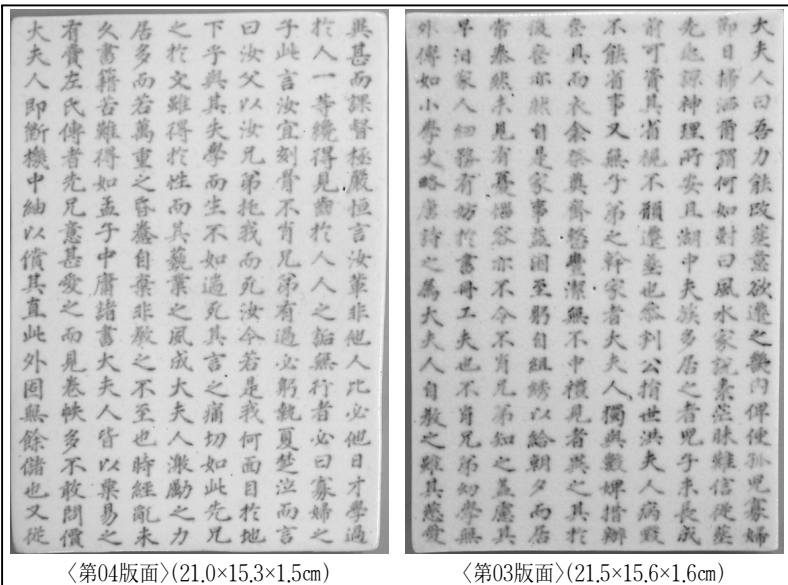 大夫人曰吾力能改葬意欲遷之畿內俾使孤児寡婦
節日掃洒爾謂何如對曰風水家說素茫昧雖信從葬
先兆諒神理所安且湖中夫族多居之者児子未長成
前可資其省視不願遷葬也參判公捐世洪夫人病毀
不能省事又無子弟之幹家者大夫人獨與數婢措辦
喪具而衣衾祭奠齊整豊潔無不中禮見者異之其於
後喪亦然自是家事益困至躬自組綉以給朝夕而居
常泰然未見有憂惱容亦不令不肖兄弟知之盖慮其
早汩家人細務有妨於書冊工夫也不肖兄弟幼學無
外傅如小學史略唐詩之属大夫人自敎之雖其慈愛
〈第03版面〉(21.5×15.6×1.6㎝)
異甚而課督極嚴恒言汝輩非他人比必他日才學過
於人一等纔得見齒於人人之詬無行者必曰寡婦之
子此言汝宜刻骨不肖兄弟有過必躬執夏楚泣而言
曰汝父以汝兄弟托我而死汝今若是我何面目於地
下乎與其失學而生不如遄死其言之痛切如此先兄
之於文雖得於性而其蓺業之夙成大夫人激勵之力
居多而若萬重之昏蠢自棄非敎之不至也時經亂未
久書籍苦難得如孟子中庸諸書大夫人皆以粟易之
有賣左氏傳者先兄意甚愛之而見卷帙多不敢問價
大夫人即斷機中紬以償其直此外固無餘儲也又從
〈第04版面〉(21.0×15.3×1.5㎝)